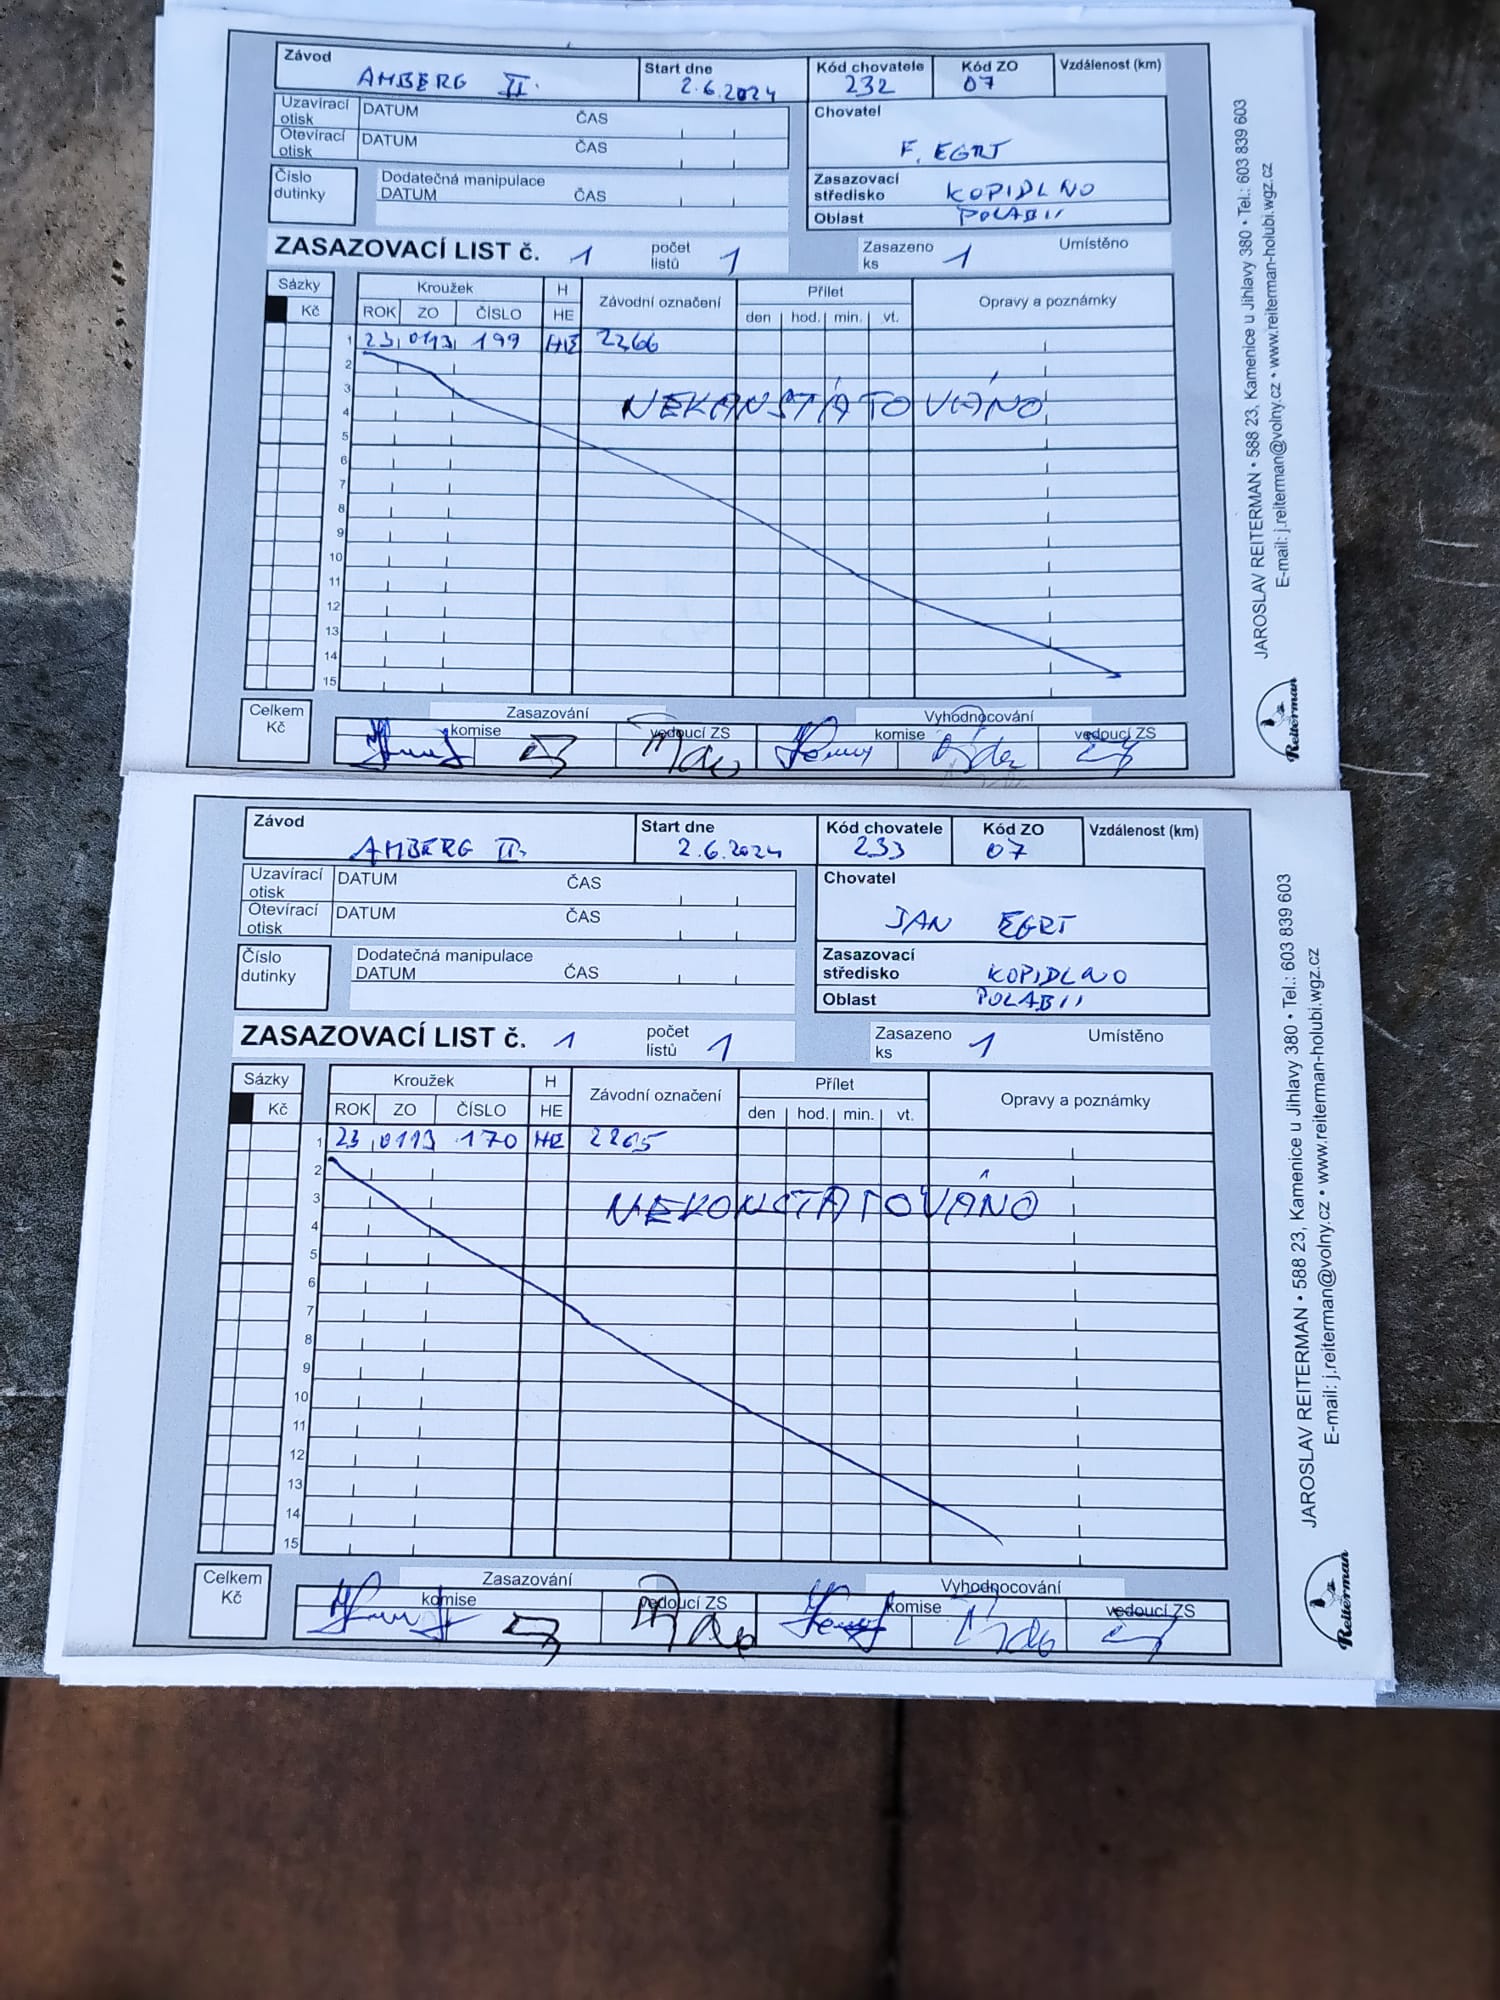 Závod AMBERG II. Start dne 2.6.2024 Kód chovatele 232 Kód ZO 07 Vzdálenost (km)
Uzavírací otisk DATUM ČAS
Otevírací otisk DATUM ČAS
Chovatel F. EGRT
Číslo dutinky Dodatečná manipulace DATUM ČAS
Zasazovací středisko KOPIDLNO
Oblast POLABII
ZASAZOVACÍ LIST č. 1 počet listů 1 Zasazeno ks 1 Umístěno
Sázky Kroužek H Závodní označení Přílet Opravy a poznámky
Kč ROK ZO ČÍSLO HE den hod. min. vt.
1 23 0113 199 HE 2266
2
3
NEKANSTÁTOVÁNO
4
5
6
7
8
9
10
11
12
13
14
15
Celkem Kč Zasazování Vyhodnocování
komise vedoucí ZS komise vedoucí ZS
JAROSLAV REITERMAN • 588 23, Kamenice u Jihlavy 380 • Tel.: 603 839 603
E-mail: j.reiterman@volny.cz • www.reiterman-holubi.wgz.cz
Reiterman
Závod AMBERG II. Start dne 2.6.2024 Kód chovatele 233 Kód ZO 07 Vzdálenost (km)
Uzavírací otisk DATUM ČAS
Otevírací otisk DATUM ČAS
Chovatel JAN EGRT
Číslo dutinky Dodatečná manipulace DATUM ČAS
Zasazovací středisko KOPIDLNO
Oblast POLABII
ZASAZOVACÍ LIST č. 1 počet listů 1 Zasazeno ks 1 Umístěno
Sázky Kroužek H Závodní označení Přílet Opravy a poznámky
Kč ROK ZO ČÍSLO HE den hod. min. vt.
1 23 0113 170 HE 2265
2
3
NEKONSTATOVÁNO
4
5
6
7
8
9
10
11
12
13
14
15
Celkem Kč Zasazování Vyhodnocování
komise vedoucí ZS komise vedoucí ZS
JAROSLAV REITERMAN • 588 23, Kamenice u Jihlavy 380 • Tel.: 603 839 603
E-mail: j.reiterman@volny.cz • www.reiterman-holubi.wgz.cz
Reiterman